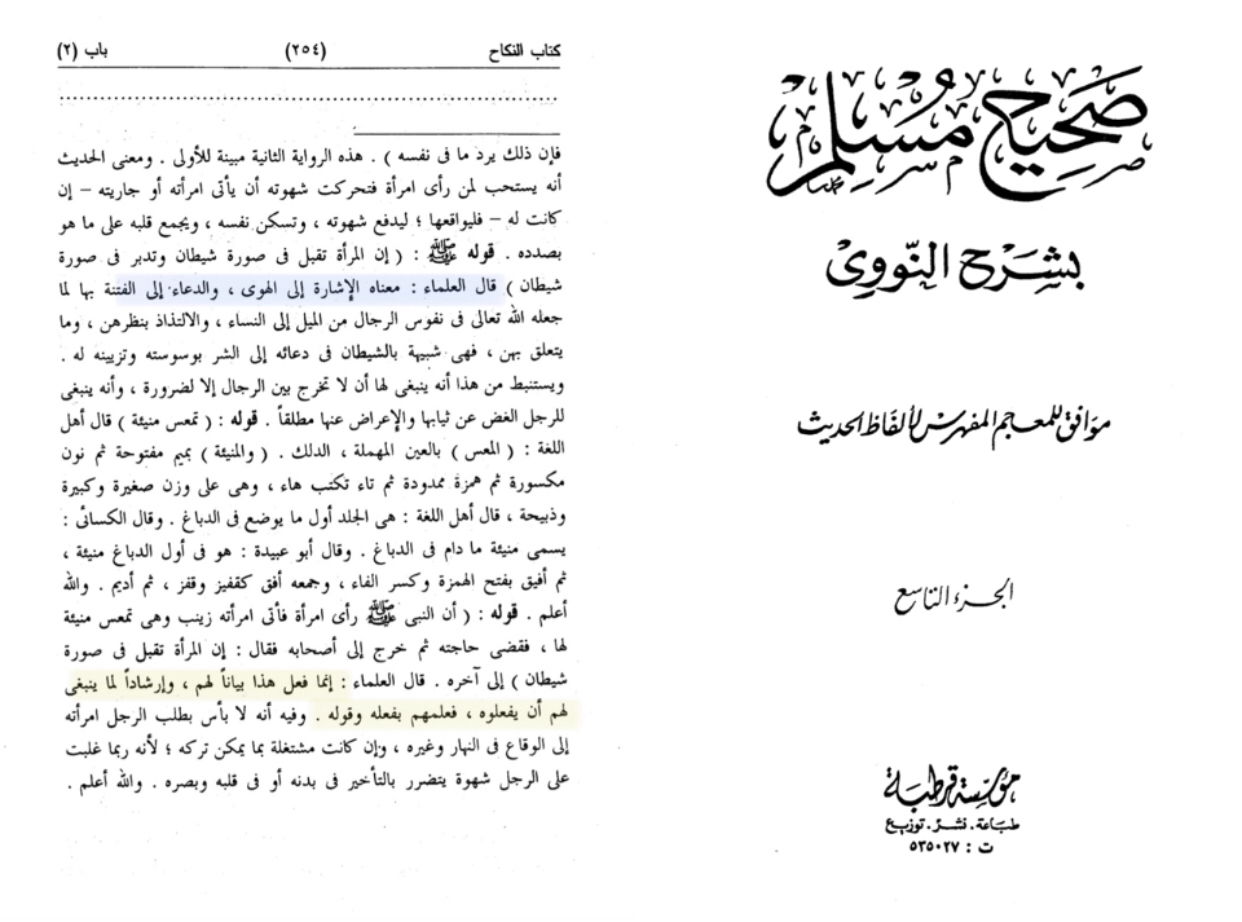 صَحِيح مُسْلِمْ
بِشَرح النَّوَوِي
موَافِق للمعجم المفهرس لألفَاظ الحَديث
الجزء التاسع
مؤسسة قرطبة
طبَاعة . نشر . توزيع
ت : ٥٣٥٠٢٧
كتاب النكاح (٢٥٤) باب (٢)
فإن ذلك يرد ما فى نفسه ) . هذه الرواية الثانية مبينة للأولى . ومعنى الحديث
أنه يستحب لمن رأى امرأة فتحركت شهوته أن يأتى امرأته أو جاريته – إن
كانت له – فليواقعها ؛ ليدفع شهوته ، وتسكن نفسه ، ويجمع قلبه على ما هو
بصدده . قوله ﷺ : ( إن المرأة تقبل فى صورة شيطان وتدبر فى صورة
شيطان ) قال العلماء : معناه الإشارة إلى الهوى ، والدعاء إلى الفتنة بها لما
جعله الله تعالى فى نفوس الرجال من الميل إلى النساء ، والالتذاذ بنظرهن ، وما
يتعلق بهن ، فهى شبيهة بالشيطان فى دعائه إلى الشر بوسوسته وتزيينه له .
ويستنبط من هذا أنه ينبغى لها أن لا تخرج بين الرجال إلا لضرورة ، وأنه ينبغى
للرجل الغض عن ثيابها والإعراض عنها مطلقاً . قوله : ( تمعس منيئة ) قال أهل
اللغة : ( المعس ) بالعين المهملة ، الدلك . ( والمنيئة ) بميم مفتوحة ثم نون
مكسورة ثم همزة ممدودة ثم تاء تكتب هاء ، وهى على وزن صغيرة وكبيرة
وذبيحة ، قال أهل اللغة : هى الجلد أول ما يوضع فى الدباغ . وقال الكسائى :
يسمى منيئة ما دام فى الدباغ . وقال أبو عبيدة : هو فى أول الدباغ منيئة ،
ثم أفيق بفتح الهمزة وكسر الفاء ، وجمعه أفق كقفيز وقفز ، ثم أديم . والله
أعلم . قوله : ( أن النبى ﷺ رأى امرأة فأتى امرأته زينب وهى تمعس منيئة
لها ، فقضى حاجته ثم خرج إلى أصحابه فقال : إن المرأة تقبل فى صورة
شيطان ) إلى آخره . قال العلماء : إنما فعل هذا بياناً لهم ، وإرشاداً لما ينبغى
لهم أن يفعلوه ، فعلمهم بفعله وقوله . وفيه أنه لا بأس بطلب الرجل امرأته
إلى الوقاع فى النهار وغيره ، وإن كانت مشتغلة بما يمكن تركه ؛ لأنه ربما غلبت
على الرجل شهوة يتضرر بالتأخير فى بدنه أو فى قلبه وبصره . والله أعلم .